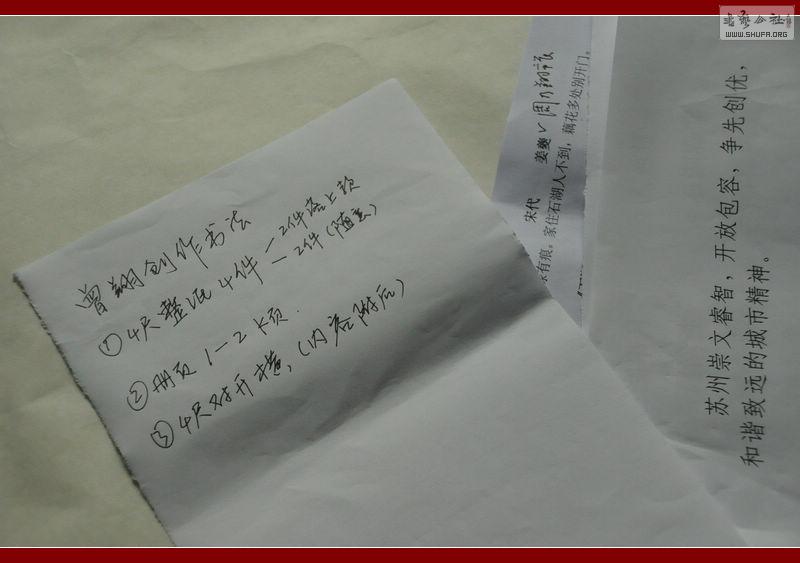 曾翔创作书法
①4尺整纸4件 — 2件落上款
— 2件(随意)
②册页1—2长页.
③4尺对开横,(内容附后)
宋代 姜夔 ✓周乃翔并颂
水有痕。家住石湖人不到,藕花多处别开门。
苏州崇文睿智,开放包容,争先创优,
和谐致远的城市精神。
书法公社
WWW.SHUFA.ORG